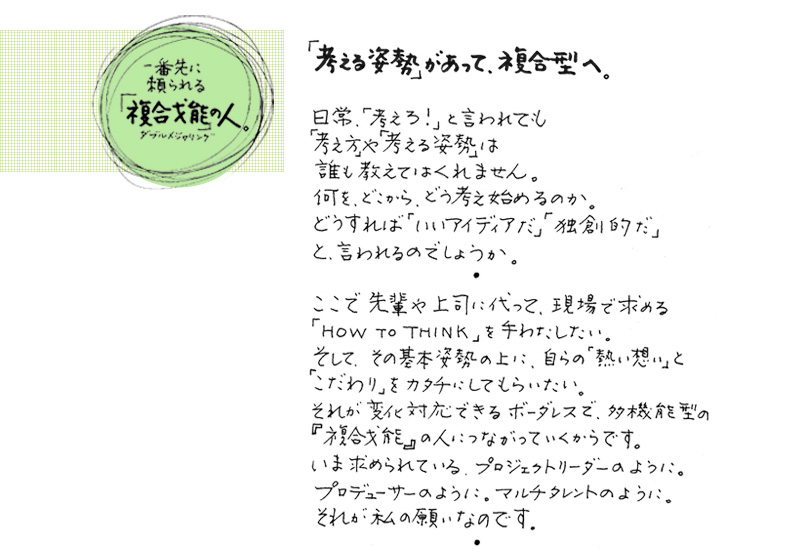 一番先に
頼られる
「複合才能」の人。
「考える姿勢」があって、複合型へ。
日常、「考えろ!」と言われても
「考え方」や「考える姿勢」は
誰も教えてはくれません。
何を、どこから、どう考え始めるのか。
どうすれば「いいアイディアだ」「独創的だ」
と、言われるのでしょうか。
ここで先輩や上司に代って、現場で求める
「HOW TO THINK」を手わたしたい。
そして、その基本姿勢の上に、自らの「熱い想い」と
「こだわり」をカタチにしてもらいたい。
それが変化対応できるボーダレスで、多機能型の
『複合才能』の人につながっていくからです。
いま求められている、プロジェクトリーダーのように。
プロデューサーのように。マルチタレントのように。
それが私の願いなのです。